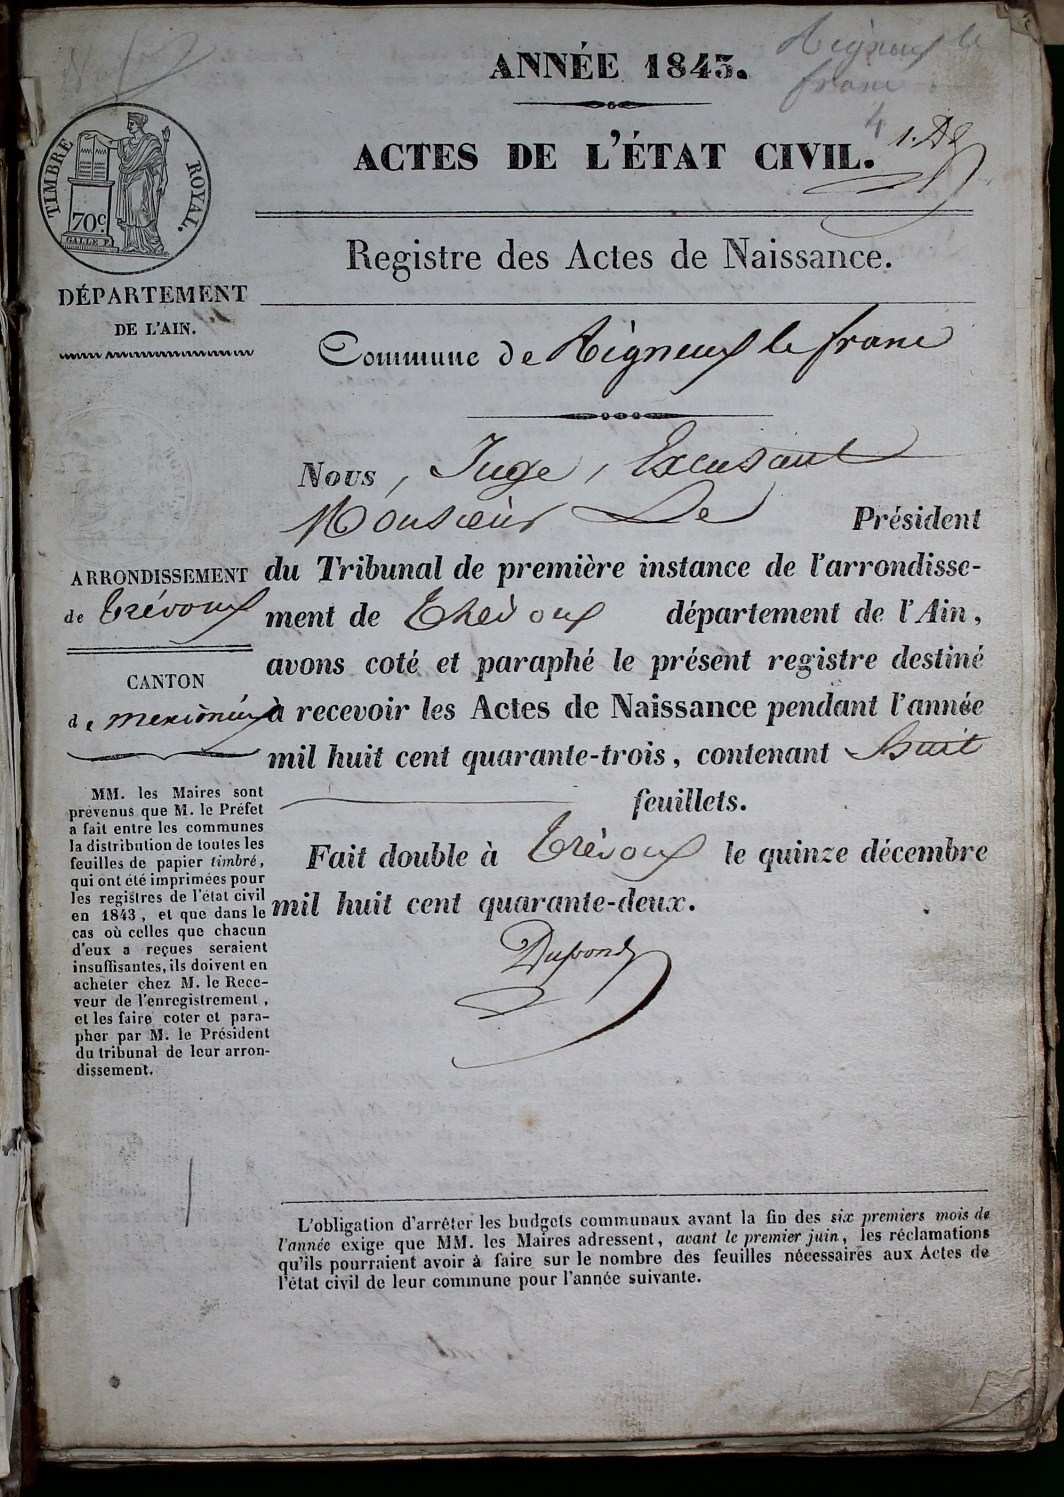 Rigneux le
franc
4
ANNÉE 1843.
ACTES DE L'ÉTAT CIVIL.
TIMBRE ROYAL.
70c
Registre des Actes de Naissance.
DÉPARTEMENT
DE L'AIN.
Commune de Rigneux le franc
Nous, Juge, Excusant
Monsieur Le Président
du Tribunal de première instance de l'arrondisse-
ment de Thévoux département de l'Ain,
avons coté et paraphé le présent registre destiné
à recevoir les Actes de Naissance pendant l'année
mil huit cent quarante-trois, contenant huit
feuillets.
Fait double à Trévoux le quinze décembre
mil huit cent quarante-deux.
ARRONDISSEMENT
de Trévoux
CANTON
de meximieux
MM. les Maires sont
prévenus que M. le Préfet
a fait entre les communes
la distribution de toutes les
feuilles de papier timbré,
qui ont été imprimées pour
les registres de l'état civil
en 1843, et que dans le
cas où celles que chacun
d'eux a reçues seraient
insuffisantes, ils doivent en
acheter chez M. le Rece-
veur de l'enregistrement,
et les faire coter et para-
pher par M. le Président
du tribunal de leur arron-
dissement.
L'obligation d'arrêter les budgets communaux avant la fin des six premiers mois de
l'année exige que MM. les Maires adressent, avant le premier juin, les réclamations
qu'ils pourraient avoir à faire sur le nombre des feuilles nécessaires aux Actes de
l'état civil de leur commune pour l'année suivante.